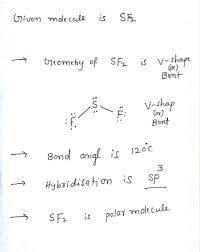 Given molecule is SF2
→ Geometry of SF2 is V-shape
(or)
Bent
:F: S: F: V-shap
(or)
Bent
→ Bond angl is 120°C
→ Hybridisation is SP3
→ SF2 is polar molecule